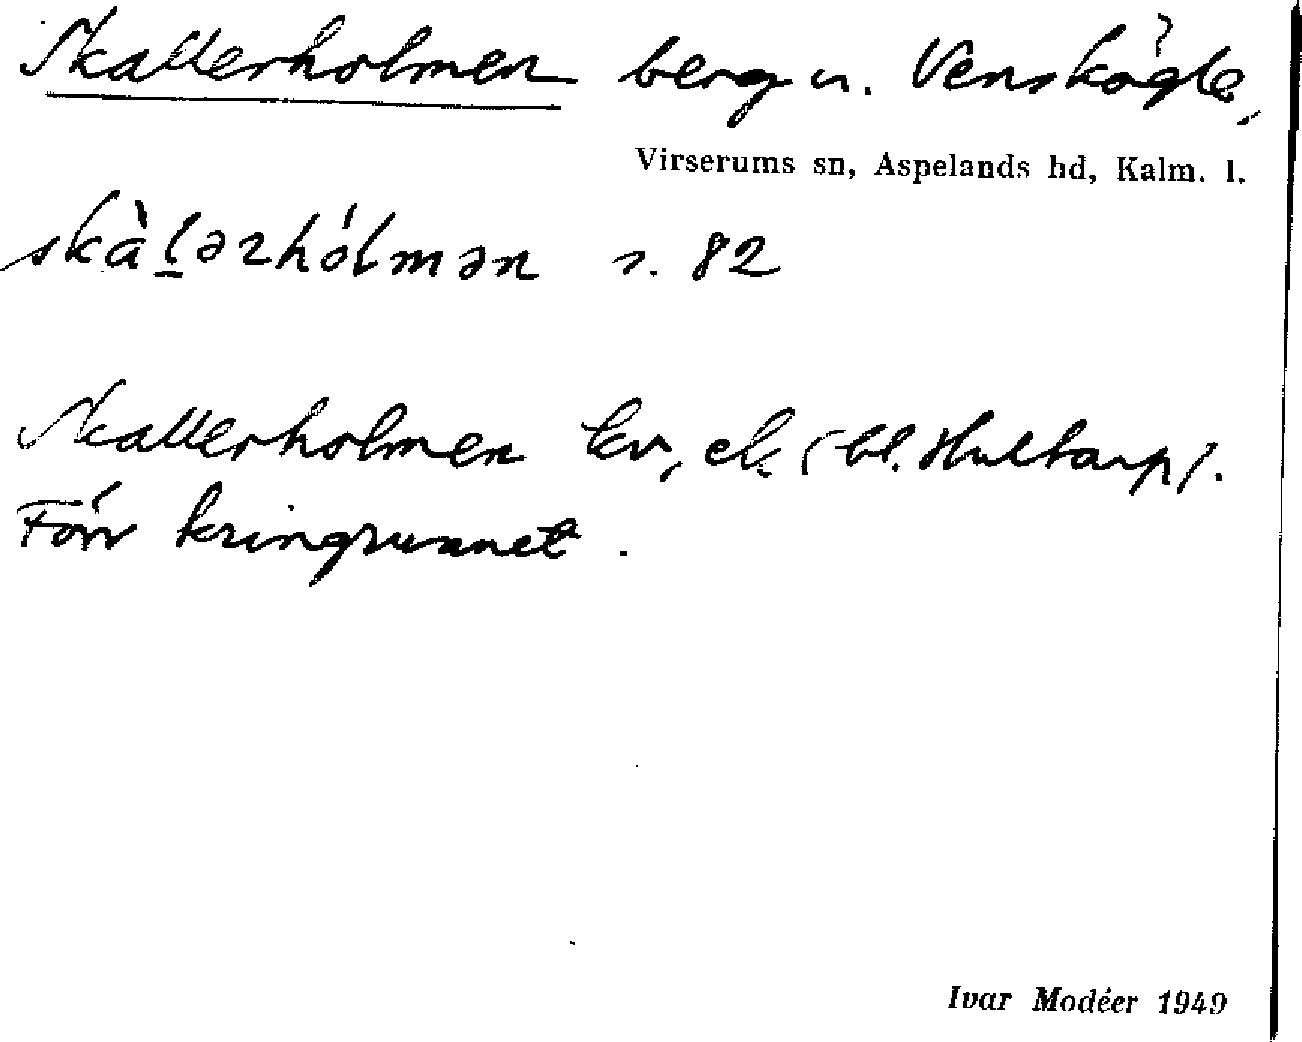 Skallerholmen berg u. Venskögle,
Virserums sn, Aspelands hd, Kalm. l.
skàlərhólmən s. 82
Skallerholmen kv, ek (bl. Hultarp).
Förr kringrunnet.
Ivar Modéer 1949